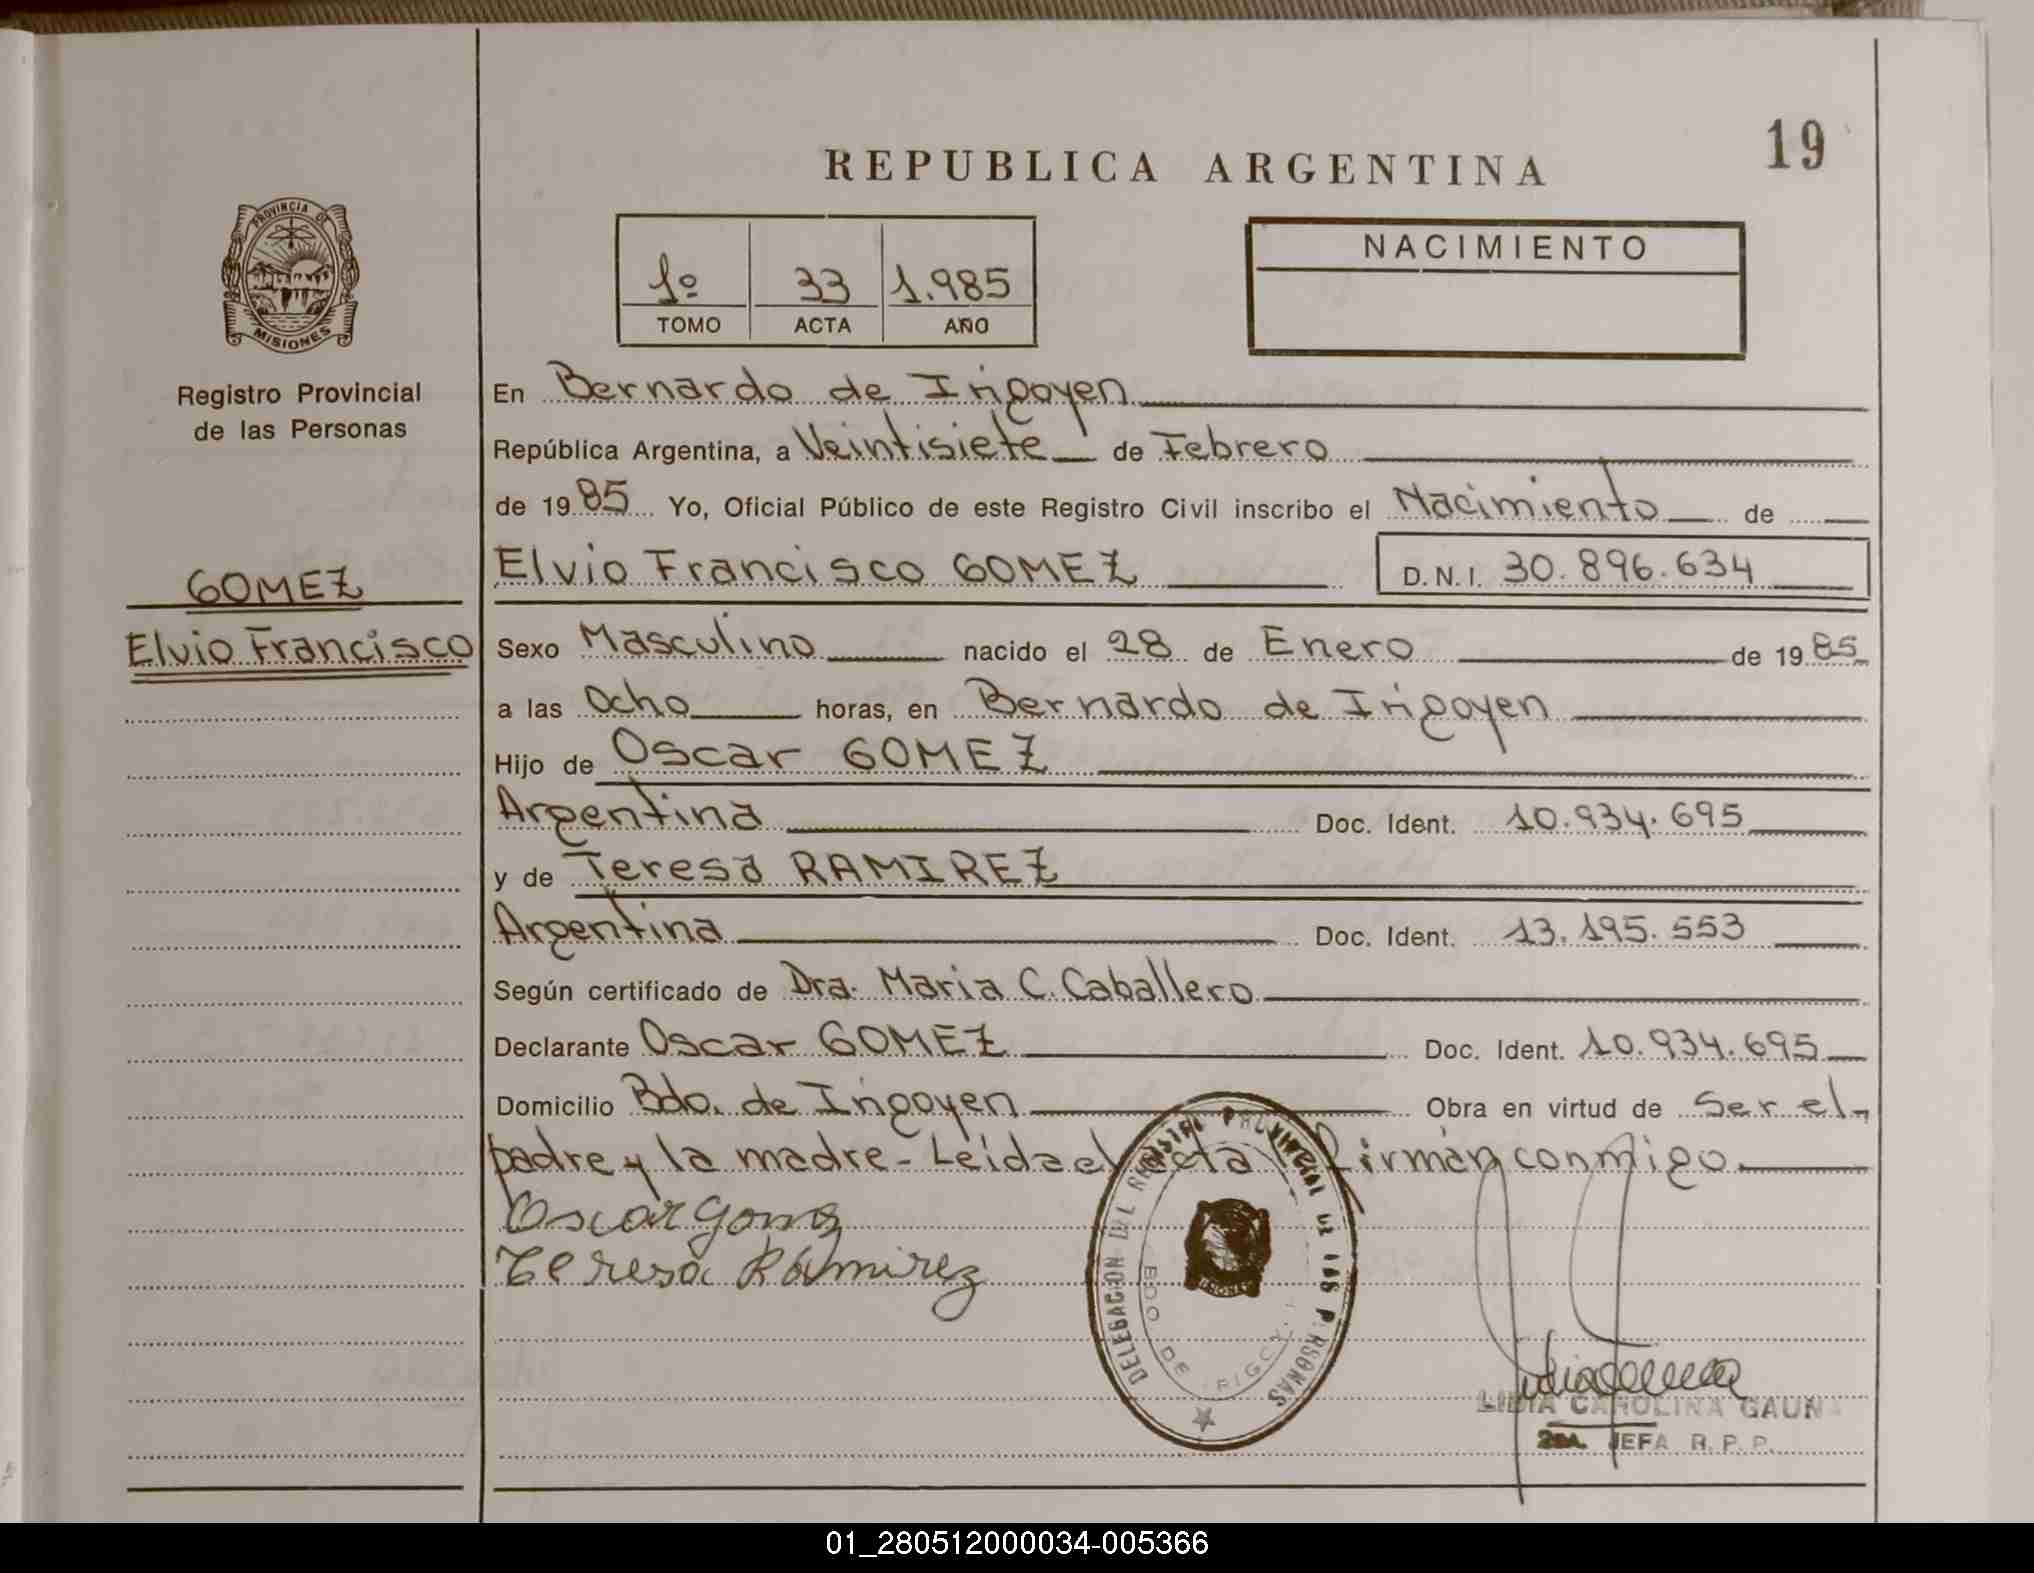 19
REPUBLICA ARGENTINA
PROVINCIA DE
MISIONES
Registro Provincial
de las Personas
1º 33 1.985
TOMO ACTA AÑO
NACIMIENTO
En Bernardo de Irigoyen
República Argentina, a Veintisiete de Febrero
de 1985 Yo, Oficial Público de este Registro Civil inscribo el Nacimiento de
GOMEZ
Elvio Francisco
Elvio Francisco GOMEZ D.N.I. 30.896.634
Sexo Masculino nacido el 28 de Enero de 1985
a las Ocho horas, en Bernardo de Irigoyen
Hijo de Oscar GOMEZ
Argentina Doc. Ident. 10.934.695
y de Teresa RAMIREZ
Argentina Doc. Ident. 13.195.553
Según certificado de Dra. Maria C. Caballero
Declarante Oscar GOMEZ Doc. Ident. 10.934.695
Domicilio Bdo. de Irigoyen Obra en virtud de Ser el
padre y la madre - Leída el acta Firman conmigo
Oscar Gomez
Teresa Ramirez
DELEGACION DEL REGISTRO PROVINCIAL DE LAS PERSONAS
BDO DE IRIGOYEN
LIDIA CAROLINA GAUNA
2da. JEFA R. P. P.
01_280512000034-005366